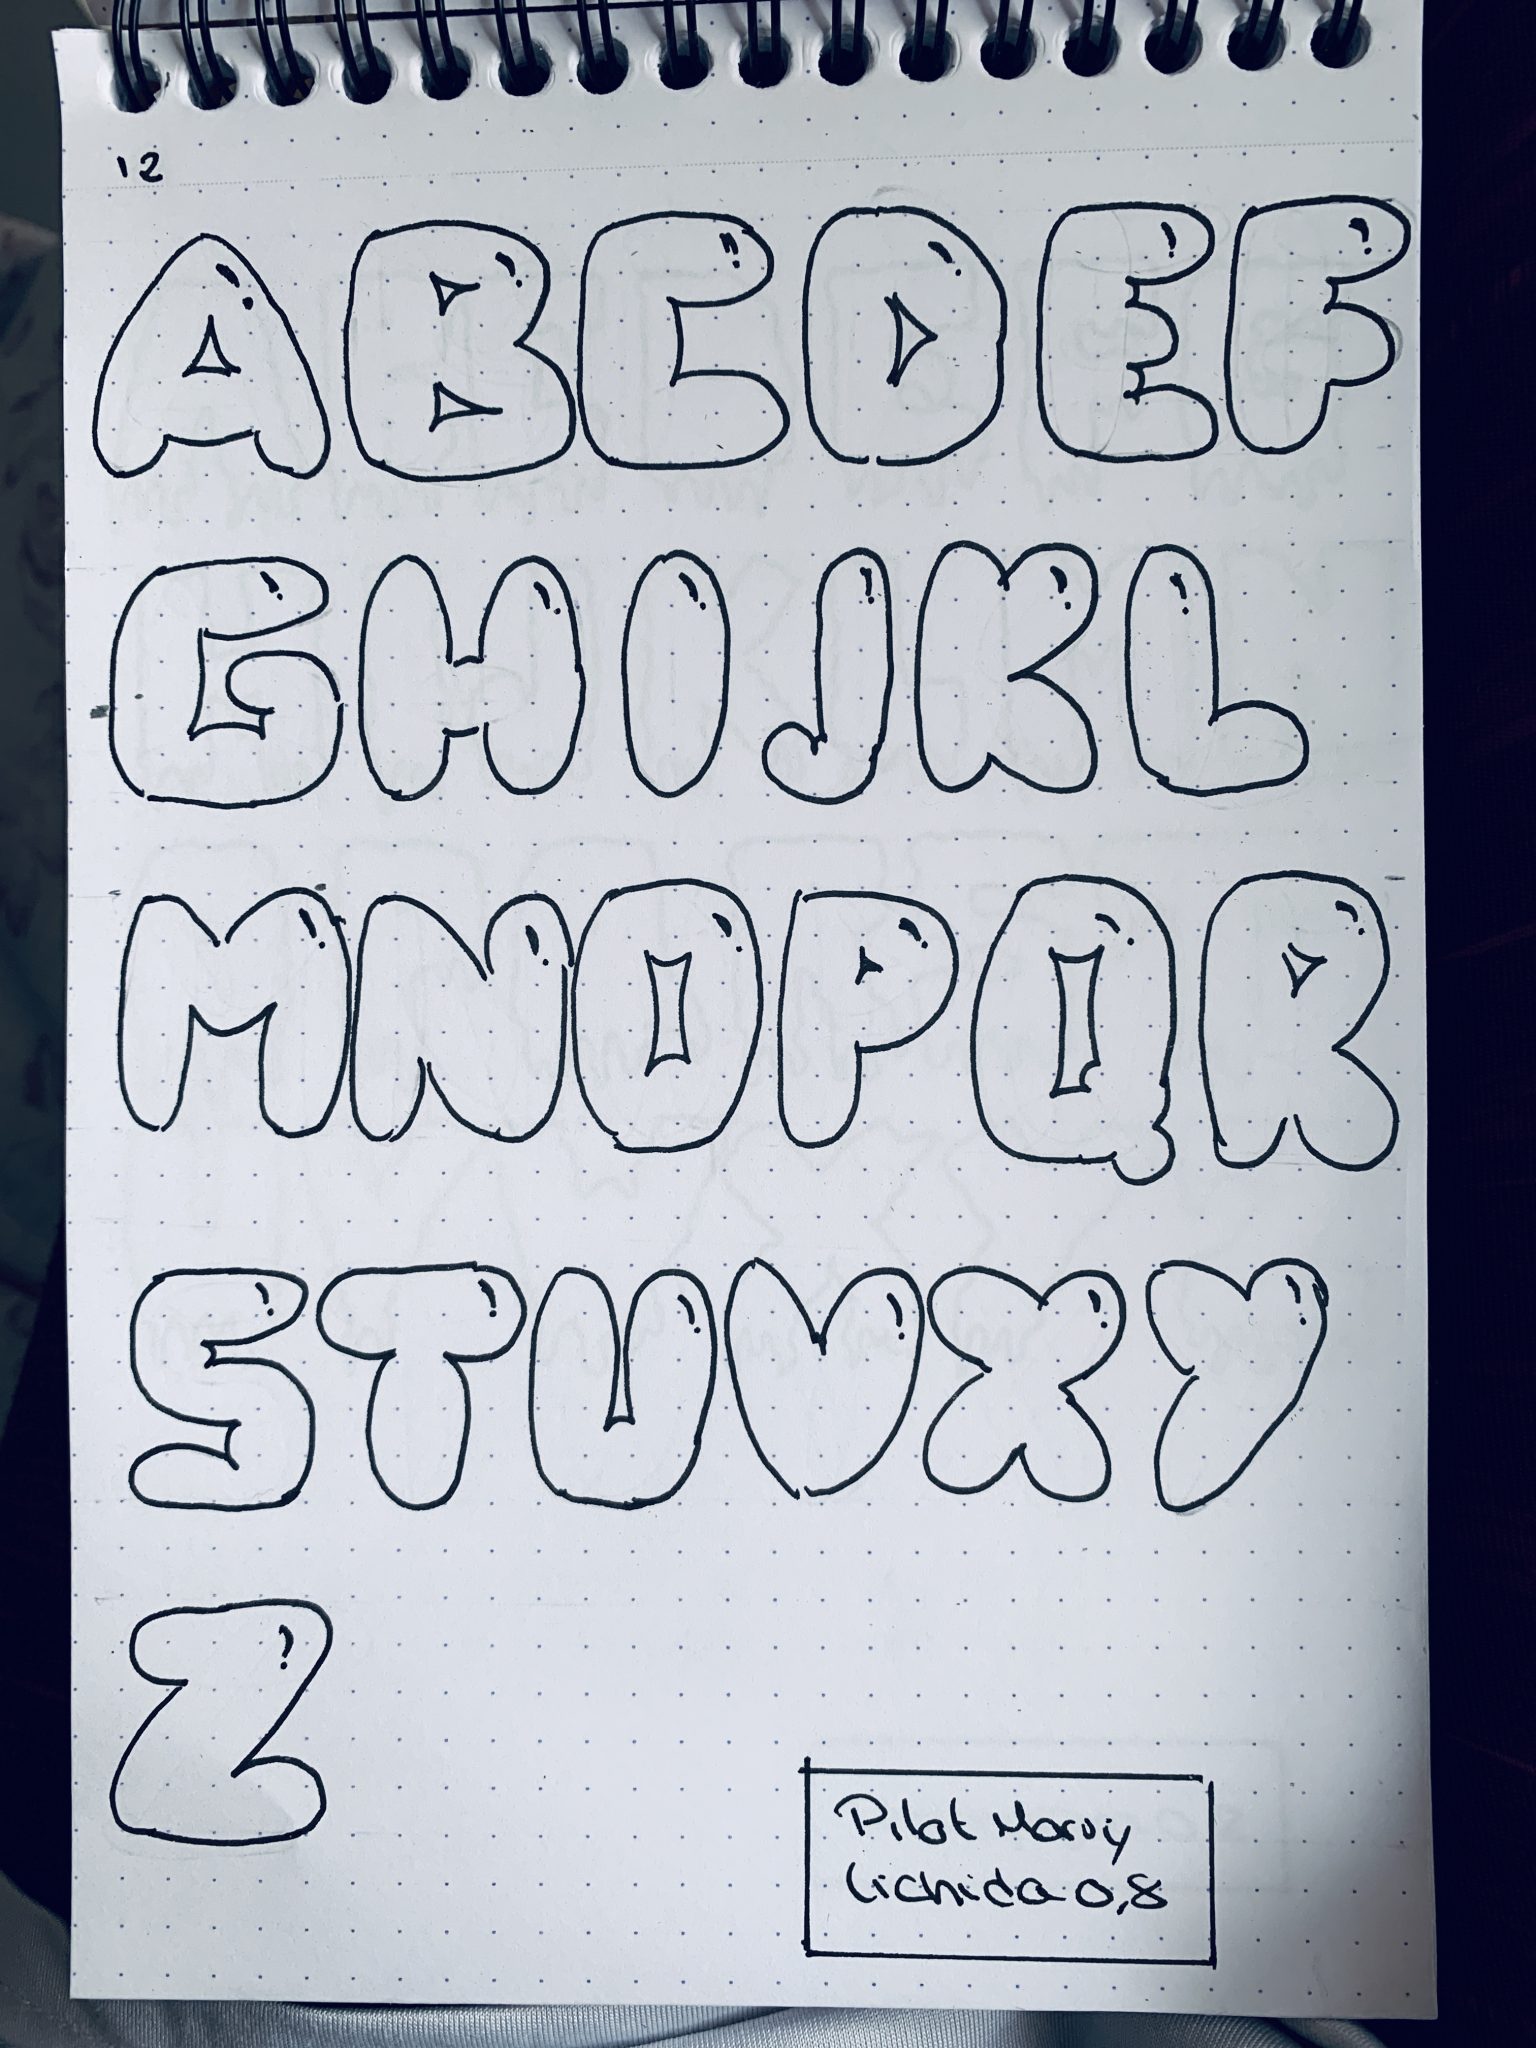 12
ABCDEF
GHIJKL
MNOPQR
STUVXY
Z
Pilot Marvy
Uchida 0,8